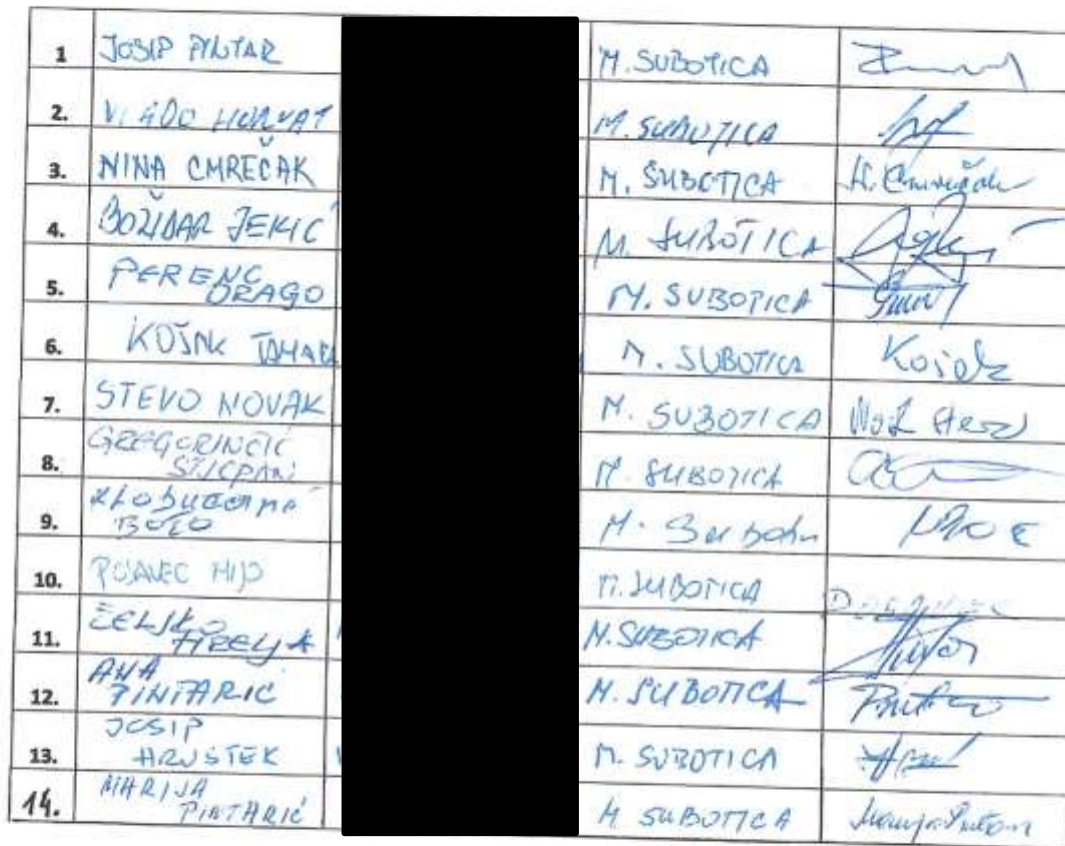 1 JOSIP PINTAR M. SUBOTICA
2. VLADO HORVAT M. SUBOTICA
3. NINA CMREČAK M. SUBOTICA N. Cmrečak
4. BOŽIDAR JEKIĆ M. SUBOTICA
5. PERENC DRAGO M. SUBOTICA
6. KOŠAK TAMARA M. SUBOTICA Košak
7. STEVO NOVAK M. SUBOTICA
8. GREGORINČIĆ STJEPAN M. SUBOTICA
9. BOŽO M.
10. POJAVEC MIJO M. SUBOTICA
11. ŽELJKO HRELJA M. SUBOTICA
12. ANA PINTARIĆ M. SUBOTICA
13. JOSIP HRUSTEK M. SUBOTICA
14. MARIJA PINTARIĆ M SUBOTICA